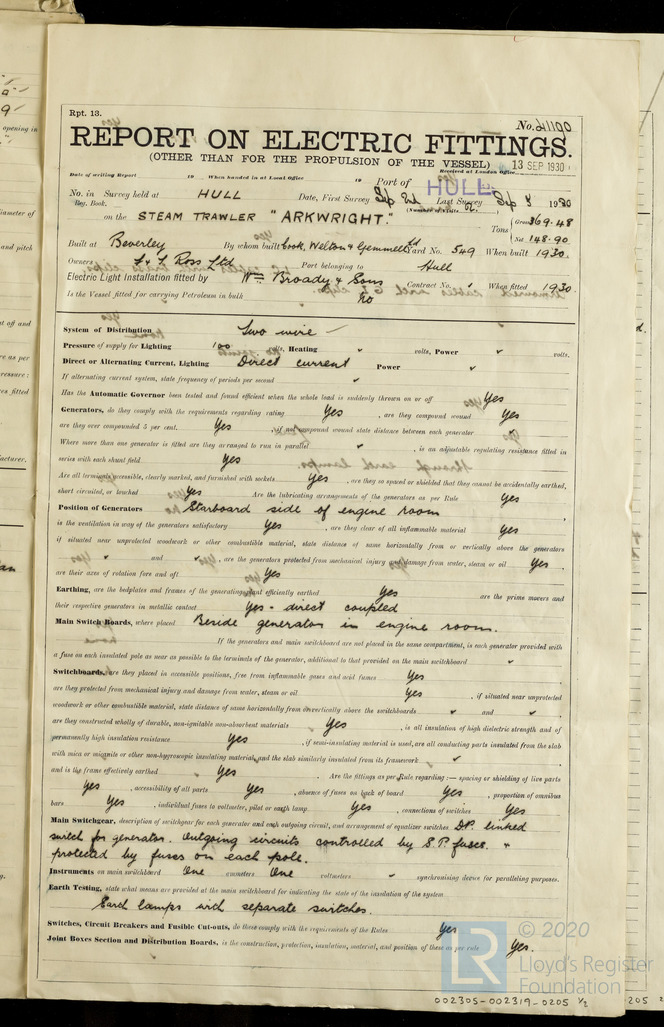 Rpt. 13.
No. 41190
REPORT ON ELECTRIC FITTINGS.
(OTHER THAN FOR THE PROPULSION OF THE VESSEL)
13 SEP 1930
Date of writing Report 19 When handed in at Local Office 19 Port of HULL Received at London Office
No. in Survey held at HULL Date, First Survey Sep 2nd Last Survey Sep 8 1930
Reg. Book. (Number of Visits
on the STEAM TRAWLER "ARKWRIGHT." Tons Gross 369.48
Net 148.90
Built at Beverley By whom built Cook, Welton & Gemmell Ld Yard No. 549 When built 1930.
Owners Ross Ltd Port belonging to Hull
Electric Light Installation fitted by Wm Broady & Sons Contract No. When fitted 1930
Is the Vessel fitted for carrying Petroleum in bulk No
System of Distribution Two wire
Pressure of supply for Lighting 100 volts, Heating volts, Power volts.
Direct or Alternating Current, Lighting Direct current Power
If alternating current system, state frequency of periods per second
Has the Automatic Governor been tested and found efficient when the whole load is suddenly thrown on or off Yes
Generators, do they comply with the requirements regarding rating Yes , are they compound wound Yes
are they over compounded 5 per cent. Yes , if not compound wound state distance between each generator
Where more than one generator is fitted are they arranged to run in parallel , is an adjustable regulating resistance fitted in
series with each shunt field Yes
Are all terminals accessible, clearly marked, and furnished with sockets Yes , are they so spaced or shielded that they cannot be accidentally earthed,
short circuited, or touched Yes Are the lubricating arrangements of the generators as per Rule Yes
Position of Generators Starboard side of engine room
is the ventilation in way of the generators satisfactory Yes , are they clear of all inflammable material Yes
if situated near unprotected woodwork or other combustible material, state distance of same horizontally from or vertically above the generators
and , are the generators protected from mechanical injury and damage from water, steam or oil Yes
are their axes of rotation fore and aft Yes
Earthing, are the bedplates and frames of the generating plant efficiently earthed Yes are the prime movers and
their respective generators in metallic contact Yes - direct coupled
Main Switch Boards, where placed Beside generator in engine room.
If the generators and main switchboard are not placed in the same compartment, is each generator provided with
a fuse on each insulated pole as near as possible to the terminals of the generator, additional to that provided on the main switchboard
Switchboards, are they placed in accessible positions, free from inflammable gases and acid fumes Yes
are they protected from mechanical injury and damage from water, steam or oil Yes , if situated near unprotected
woodwork or other combustible material, state distance of same horizontally from or vertically above the switchboards and
are they constructed wholly of durable, non-ignitable non-absorbent materials Yes , is all insulation of high dielectric strength and of
permanently high insulation resistance Yes , if semi-insulating material is used, are all conducting parts insulated from the slab
with mica or micanite or other non-hygroscopic insulating material, and the slab similarly insulated from its framework
and is the frame effectively earthed Yes . Are the fittings as per Rule regarding:— spacing or shielding of live parts
Yes , accessibility of all parts Yes , absence of fuses on back of board Yes , proportion of omnibus
bars Yes , individual fuses to voltmeter, pilot or earth lamp Yes , connections of switches Yes
Main Switchgear, description of switchgear for each generator and each outgoing circuit, and arrangement of equalizer switches D.P. linked
switch for generator. Outgoing circuits controlled by S.P. fuses. &
protected by fuses on each pole.
Instruments on main switchboard One ammeters One voltmeters synchronising device for paralleling purposes.
Earth Testing, state what means are provided at the main switchboard for indicating the state of the insulation of the system
Earth lamps with separate switches.
Switches, Circuit Breakers and Fusible Cut-outs, do these comply with the requirements of the Rules Yes
Joint Boxes Section and Distribution Boards, is the construction, protection, insulation, material, and position of these as per rule Yes.
LR © 2020
Lloyd's Register
Foundation
002305-002319-0205 1/2